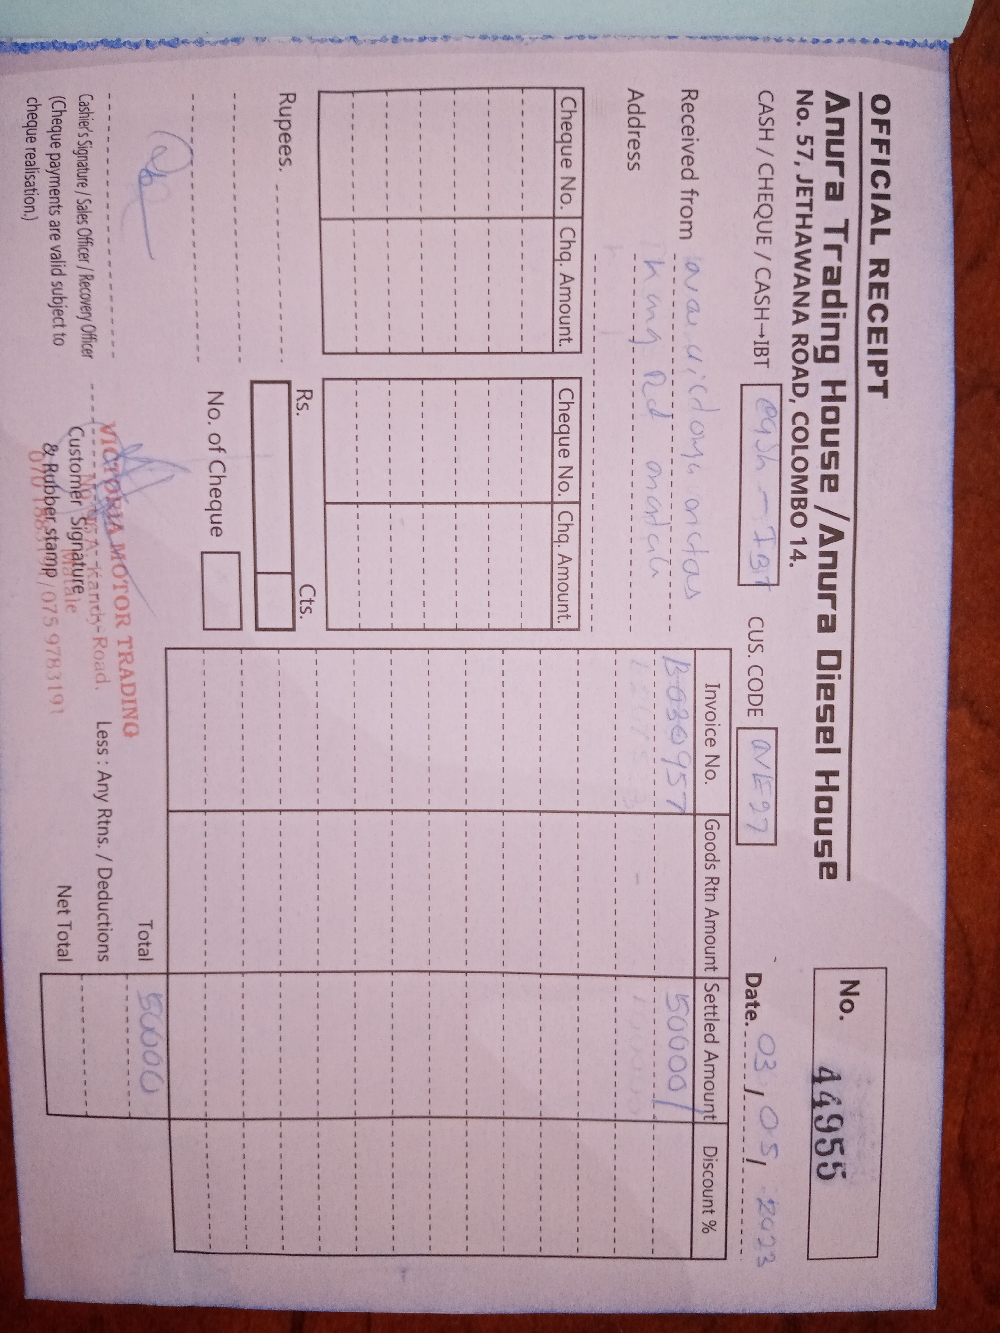 OFFICIAL RECEIPT
Anura Trading House / Anura Diesel House
No. 57, JETHAWANA ROAD, COLOMBO 14.
No. 44955
CASH / CHEQUE / CASH→IBT cash - IBT CUS. CODE NE97
Date. 03 / 05 / 2023
Received from
Address Road
Cheque No. Chq. Amount. Cheque No. Chq. Amount.
Invoice No. Goods Rtn Amount Settled Amount Discount %
B030957 50000/
Rupees.
Rs. Cts.
No. of Cheque
Total 50000
Less : Any Rtns. / Deductions
Net Total
Cashier's Signature / Sales Officer / Recovery Officer
(Cheque payments are valid subject to
cheque realisation.)
Customer Signature
& Rubber stamp
VICTORIA MOTOR TRADING
Kandy-Road,
Matale
/ 075 9783191